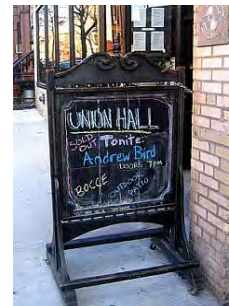 UNION HALL
SOLD OUT
Tonite:
Andrew Bird
DOORS 7PM
BOCCE
OUTDOOR PATIO